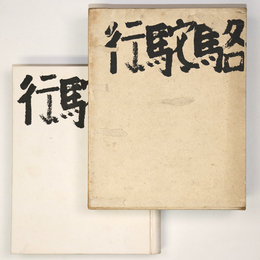 駱駝行
行